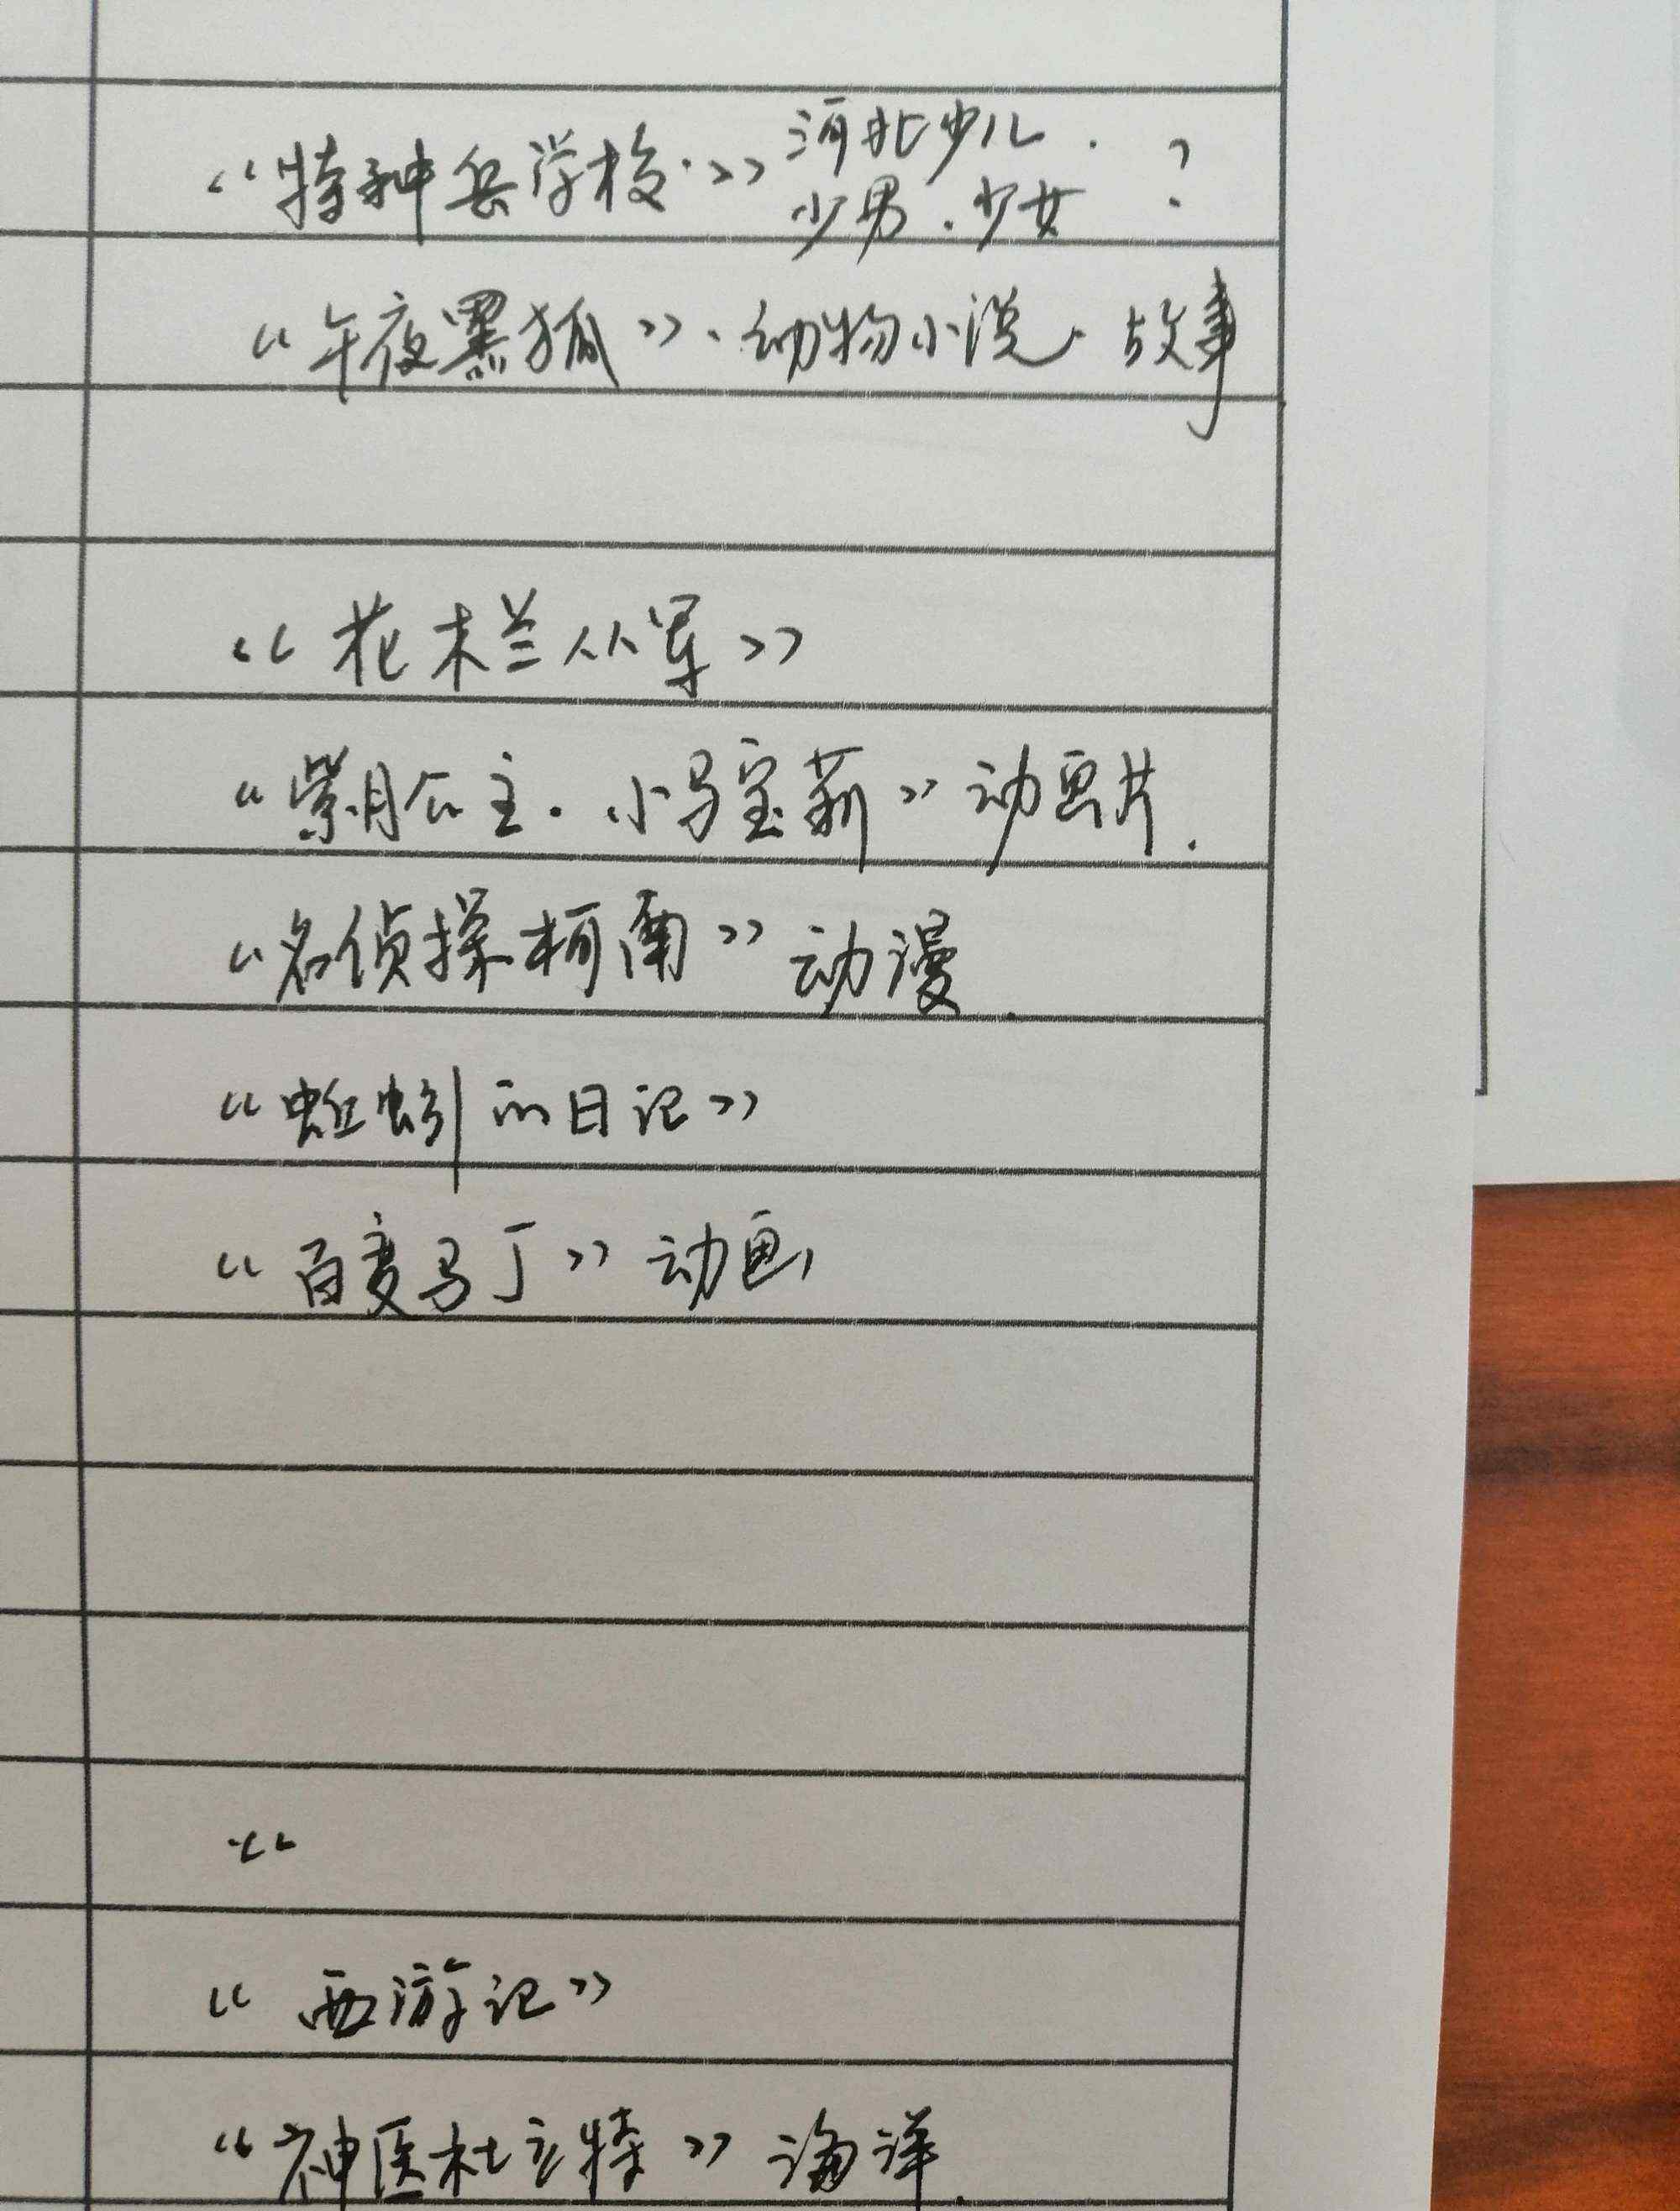 《特种兵学校》河北少儿. ?
少男.少女
《午夜黑狐》、动物小说、故事
《花木兰从军》
《紫月公主·小马宝莉》动画片.
《名侦探柯南》动漫.
《蚯蚓的日记》
《百变马丁》动画,
《
《西游记》
《神医杜立特》海洋.